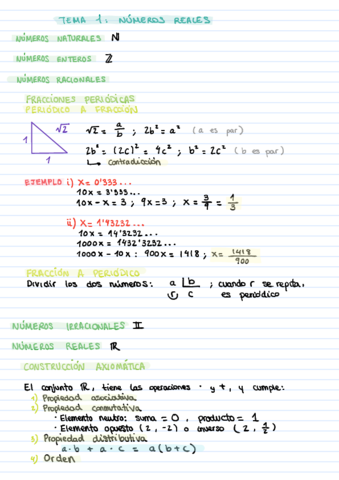 TEMA 1: NÚMEROS REALES
NÚMEROS NATURALES ℕ
NÚMEROS ENTEROS ℤ
NÚMEROS RACIONALES
FRACCIONES PERIÓDICAS
PERIÓDICO A FRACCIÓN
√2 = a/b ; 2b² = a² (a es par)
2b² = (2c)² = 4c² ; b² = 2c² (b es par)
↳ contradicción
√2
1
1
EJEMPLO i) x = 0'333...
10x = 3'333...
10x - x = 3 ; 9x = 3 ; x = 3/9 = 1/3
ii) x = 1'43232...
10x = 14'3232...
1000x = 1432'3232...
1000x - 10x : 900x = 1418 ; x = 1418/900
FRACCIÓN A PERIÓDICO
Dividir los dos números: a |b ; cuando r se repita,
r c es periódico
NÚMEROS IRRACIONALES 𝕀
NÚMEROS REALES ℝ
CONSTRUCCIÓN AXIOMÁTICA
El conjunto ℝ, tiene las operaciones · y +, y cumple:
1) Propiedad asociativa
2) Propiedad conmutativa
· Elemento neutro: suma = 0, producto = 1
· Elemento opuesto (2, -2) o inverso (2, 1/2)
3) Propiedad distributiva
a·b + a·c = a(b+c)
4) Orden